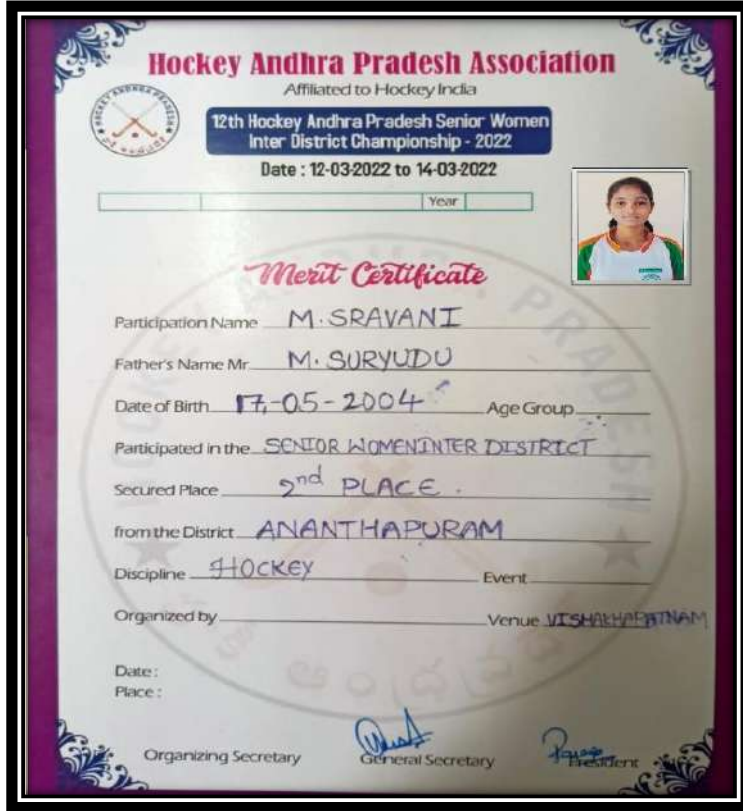 Hockey Andhra Pradesh Association
Affiliated to Hockey India
HOCKEY ANDHRA PRADESH
12th Hockey Andhra Pradesh Senior Women
Inter District Championship - 2022
Date : 12-03-2022 to 14-03-2022
Year
Merit Certificate
Participation Name M. SRAVANI
Father's Name Mr. M. SURYUDU
Date of Birth 17-05-2004 Age Group
Participated in the SENIOR WOMENINTER DISTRICT
Secured Place 2nd PLACE.
from the District ANANTHAPURAM
Discipline HOCKEY Event
Organized by Venue VISHAKHAPATNAM
Date :
Place :
Organizing Secretary General Secretary President